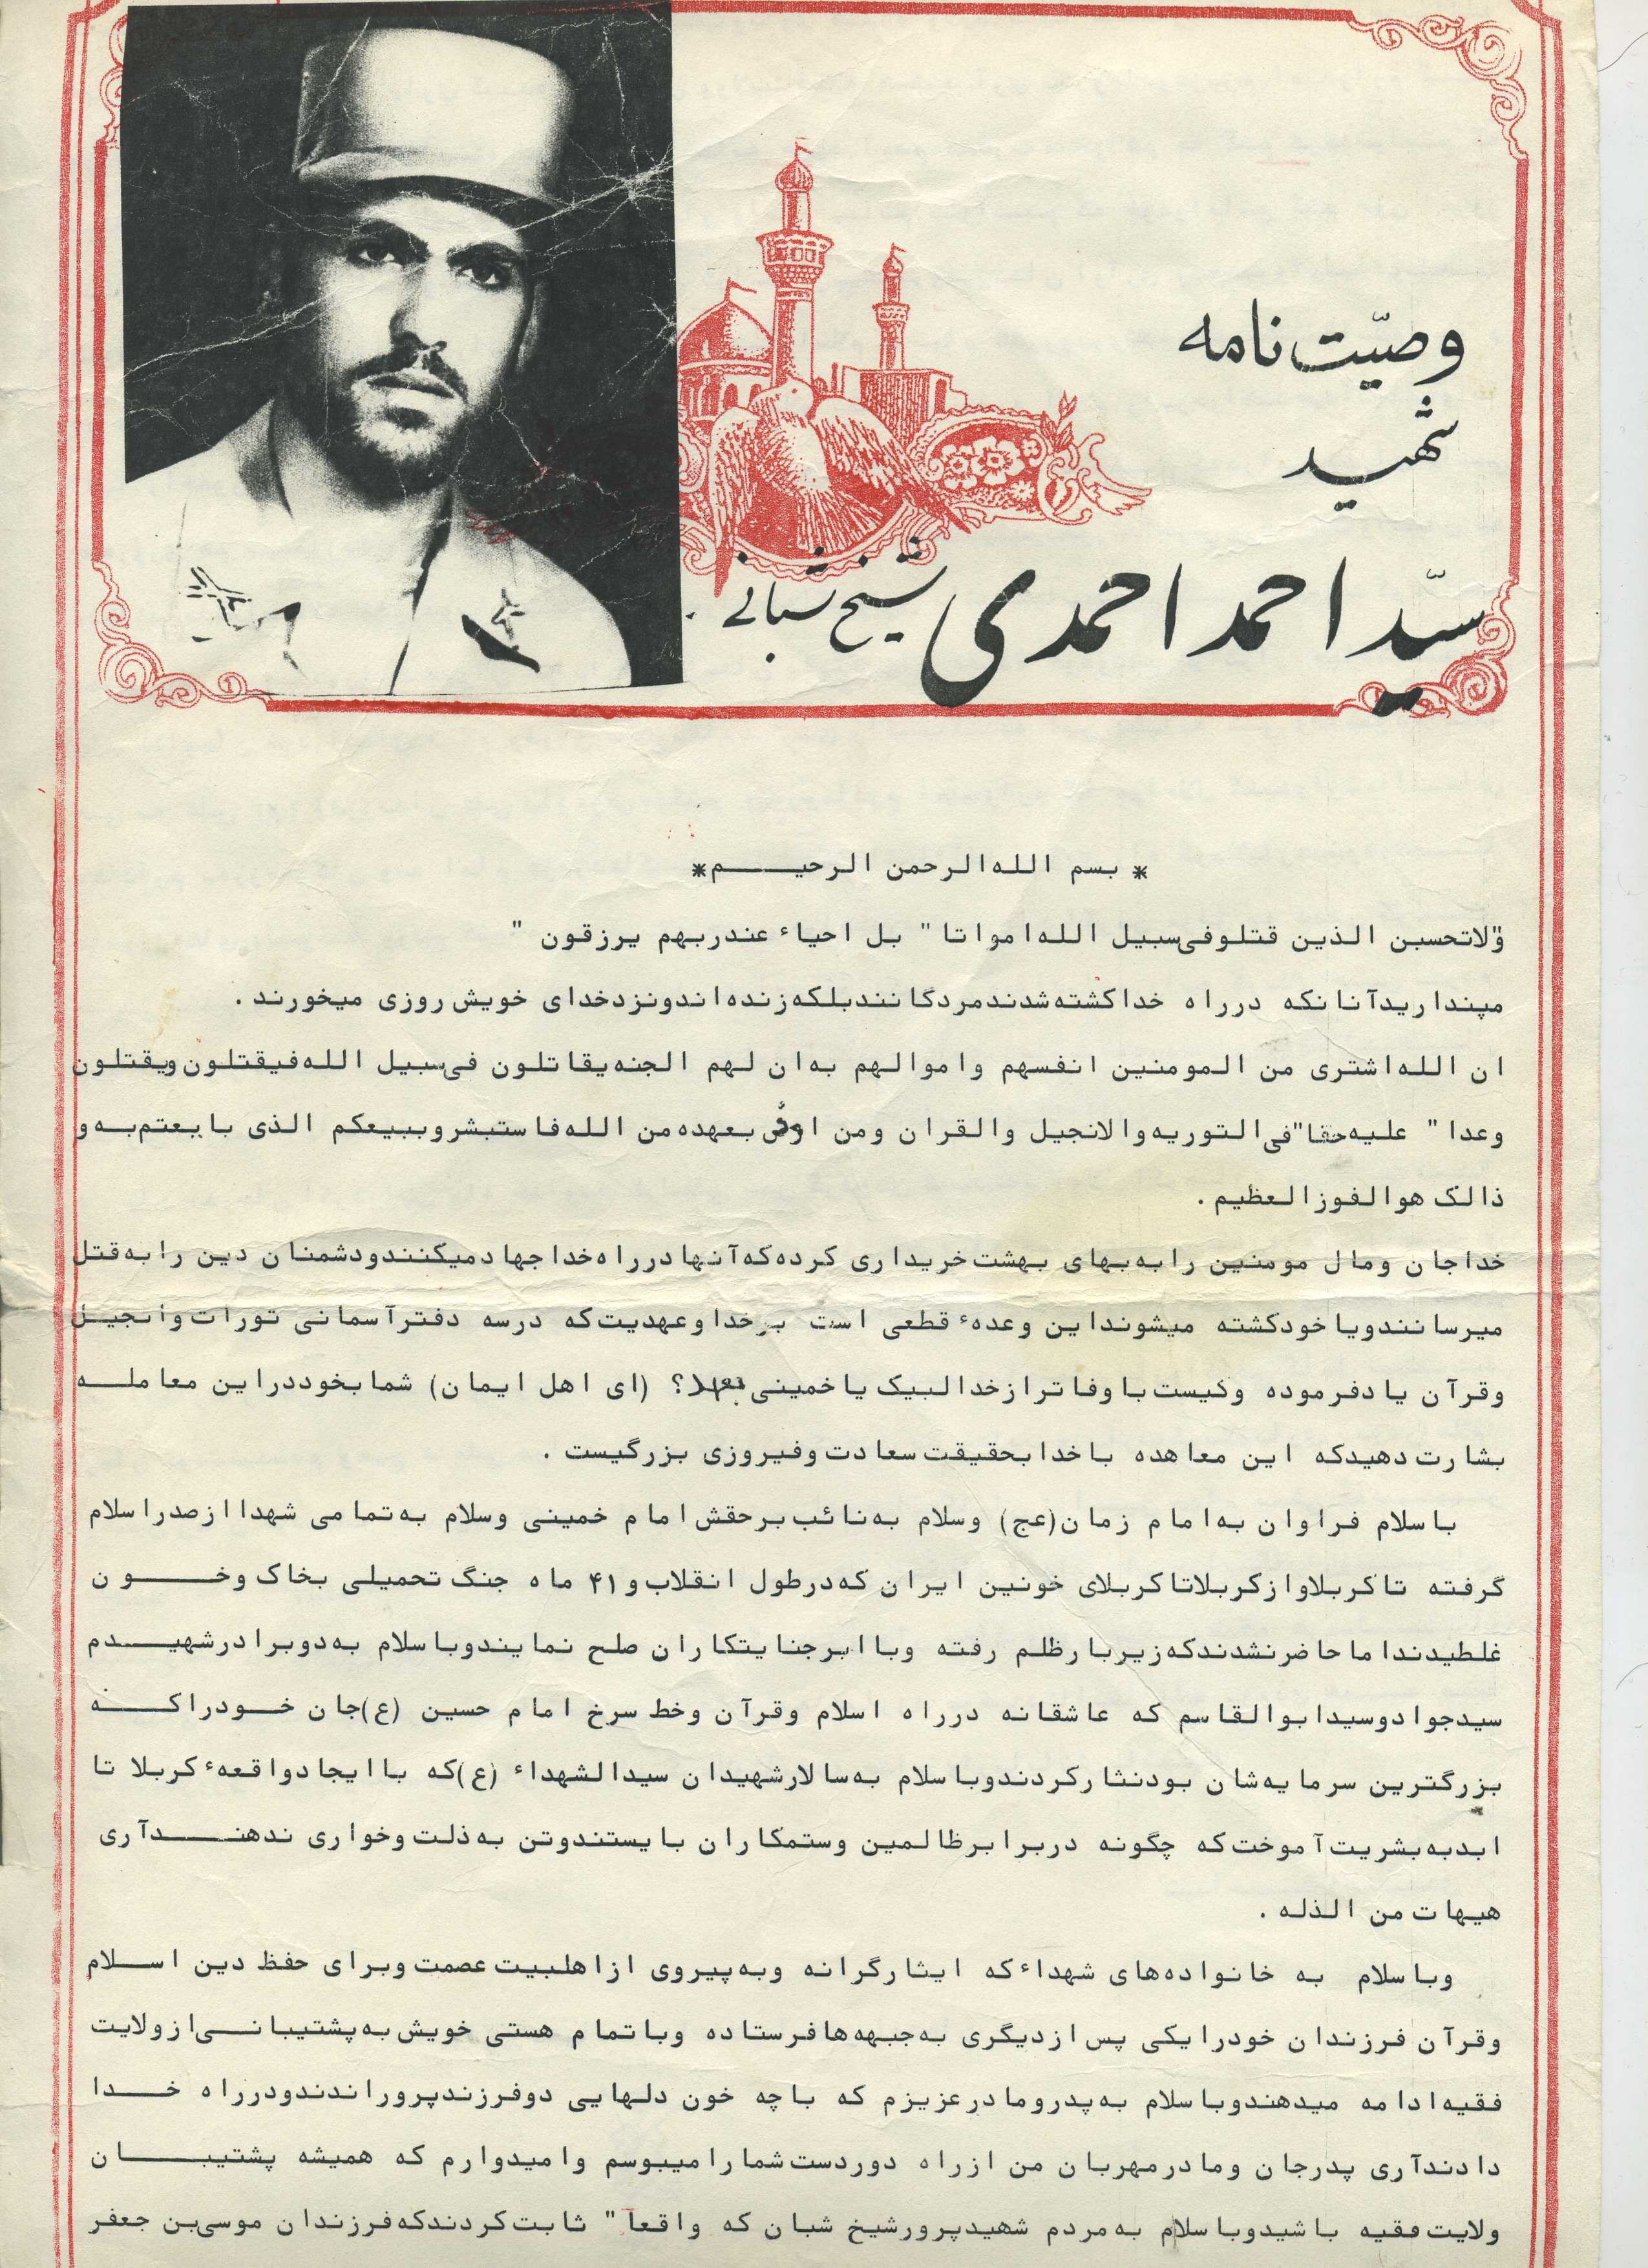 وصیّت‌نامه
شهید
سیّد احمد احمدی شیخ شبانی
* بسم الله الرحمن الرحیـــــم*
وّلاتحسبن الذین قتلوفی‌سبیل الله امواتا" بل احیاء عندربهم یرزقون "
مپنداریدآنانکه درراه خداکشته‌شدندمردگانندبلکه‌زنده‌اندونزدخدای خویش‌روزی میخورند .
ان الله‌اشتری من المومنین انفسهم واموالهم به‌ان لهم الجنه‌یقاتلون فی‌سبیل الله‌فیقتلون‌ویقتلون
وعدا" علیه‌حقا"فی‌التوریه‌والانجیل والقران ومن اوفی بعهده‌من الله‌فاستبشروببیعکم الذی بایعتم‌بــه‌و
ذالک هوالفوزالعظیم .
خداجان ومال مومنین رابه‌بهای بهشت‌خریداری کرده‌که‌آنهادرراه‌خداجهادمیکنندودشمنان دین رابه‌قتل
میرسانندویاخودکشته میشونداین وعدهء قطعی است برخداوعهدیت‌که درسه دفترآسمانی تورات‌وانجیـل
وقرآن یادفرموده وکیست‌باوفاترازخدالبیک یاخمینی بعهد؟ (ای اهل ایمان) شمابخوددراین معاملــه
بشارت‌دهیدکه این معاهده باخدابحقیقت‌سعادت‌وفیروزی بزرگیست .
باسلام فراوان به‌امام زمان(عج) وسلام به‌نائب‌برحقش‌امام خمینی وسلام به‌تمامی شهداازصدراسلام
گرفته تاکربلاوازکربلاتاکربلای خونین ایران که‌درطول انقلاب‌و۴۱ ماه جنگ‌تحمیلی بخاک وخــــون
غلطیدنداماحاضرنشدندکه‌زیربارظلم رفته وباابرجنایتکاران صلح نمایندوباسلام به‌دوبرادرشهیــــدم
سیدجوادوسیدابوالقاسم که عاشقانه درراه اسلام وقرآن وخط سرخ امام حسین (ع)جان خــودراکـــه
بزرگترین سرمایه‌شان بودنثارکردندوباسلام به‌سالارشهیدان سیدالشهداء (ع)که باایجادواقعهء کربلا تا
ابدبه‌بشریت‌آموخت‌که چگونه دربرابرظالمین وستمکاران بایستندوتن به‌ذلت‌وخواری ندهنــــدآری
هیهات من الذله .
وباسلام به خانواده‌های شهداءکه ایثارگرانه وبه‌پیروی ازاهلبیت‌عصمت‌وبرای حفظ دین اســلام
وقرآن فرزندان خودرایکی پس‌ازدیگری به‌جبهه‌هافرستاده وباتمام هستی خویش‌به‌پشتیبانـــی‌ازولایت
فقیه‌ادامه میدهندوباسلام به‌پدرومادرعزیزم که باچه خون دلهایی دوفرزندپروراندندودرراه خـــدا
دادندآری پدرجان ومادرمهربان من ازراه دوردست‌شمارامیبوسم وامیدوارم که همیشه پشتیبـــــان
ولایت‌فقیه باشیدوباسلام به‌مردم شهیدپرورشیخ شبان که واقعآ" ثابت‌کردندکه‌فرزندان موسی‌بن جعفر